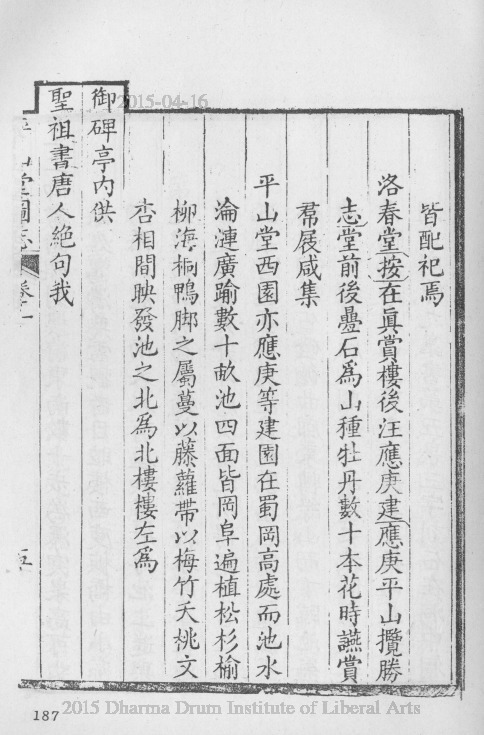 皆配祀焉
洛春堂按在眞賞樓後汪應庚建應庚平山攬勝
志堂前後疊石爲山種牡丹數十本花時讌賞
帬屐咸集
平山堂西園亦應庚等建園在蜀岡高處而池水
淪漣廣踰數十畝池四面皆岡阜遍植松杉榆
柳海桐鴨脚之屬蔓以藤蘿帶以梅竹夭桃文
杏相間映發池之北爲北樓樓左爲
御碑亭內供
聖祖書唐人絕句我
平山堂圖志
卷一
五
187
2015-04-16
2015 Dharma Drum Institute of Liberal Arts